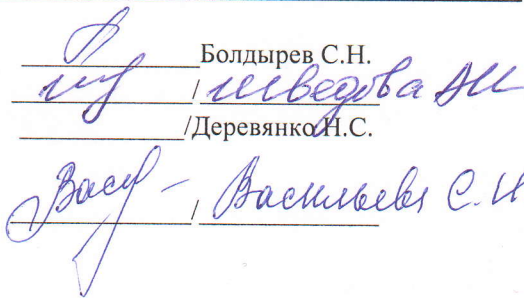 Болдырев С.Н.
/ Шведова АН
/Деревянко Н.С.
/ Васильева С.И